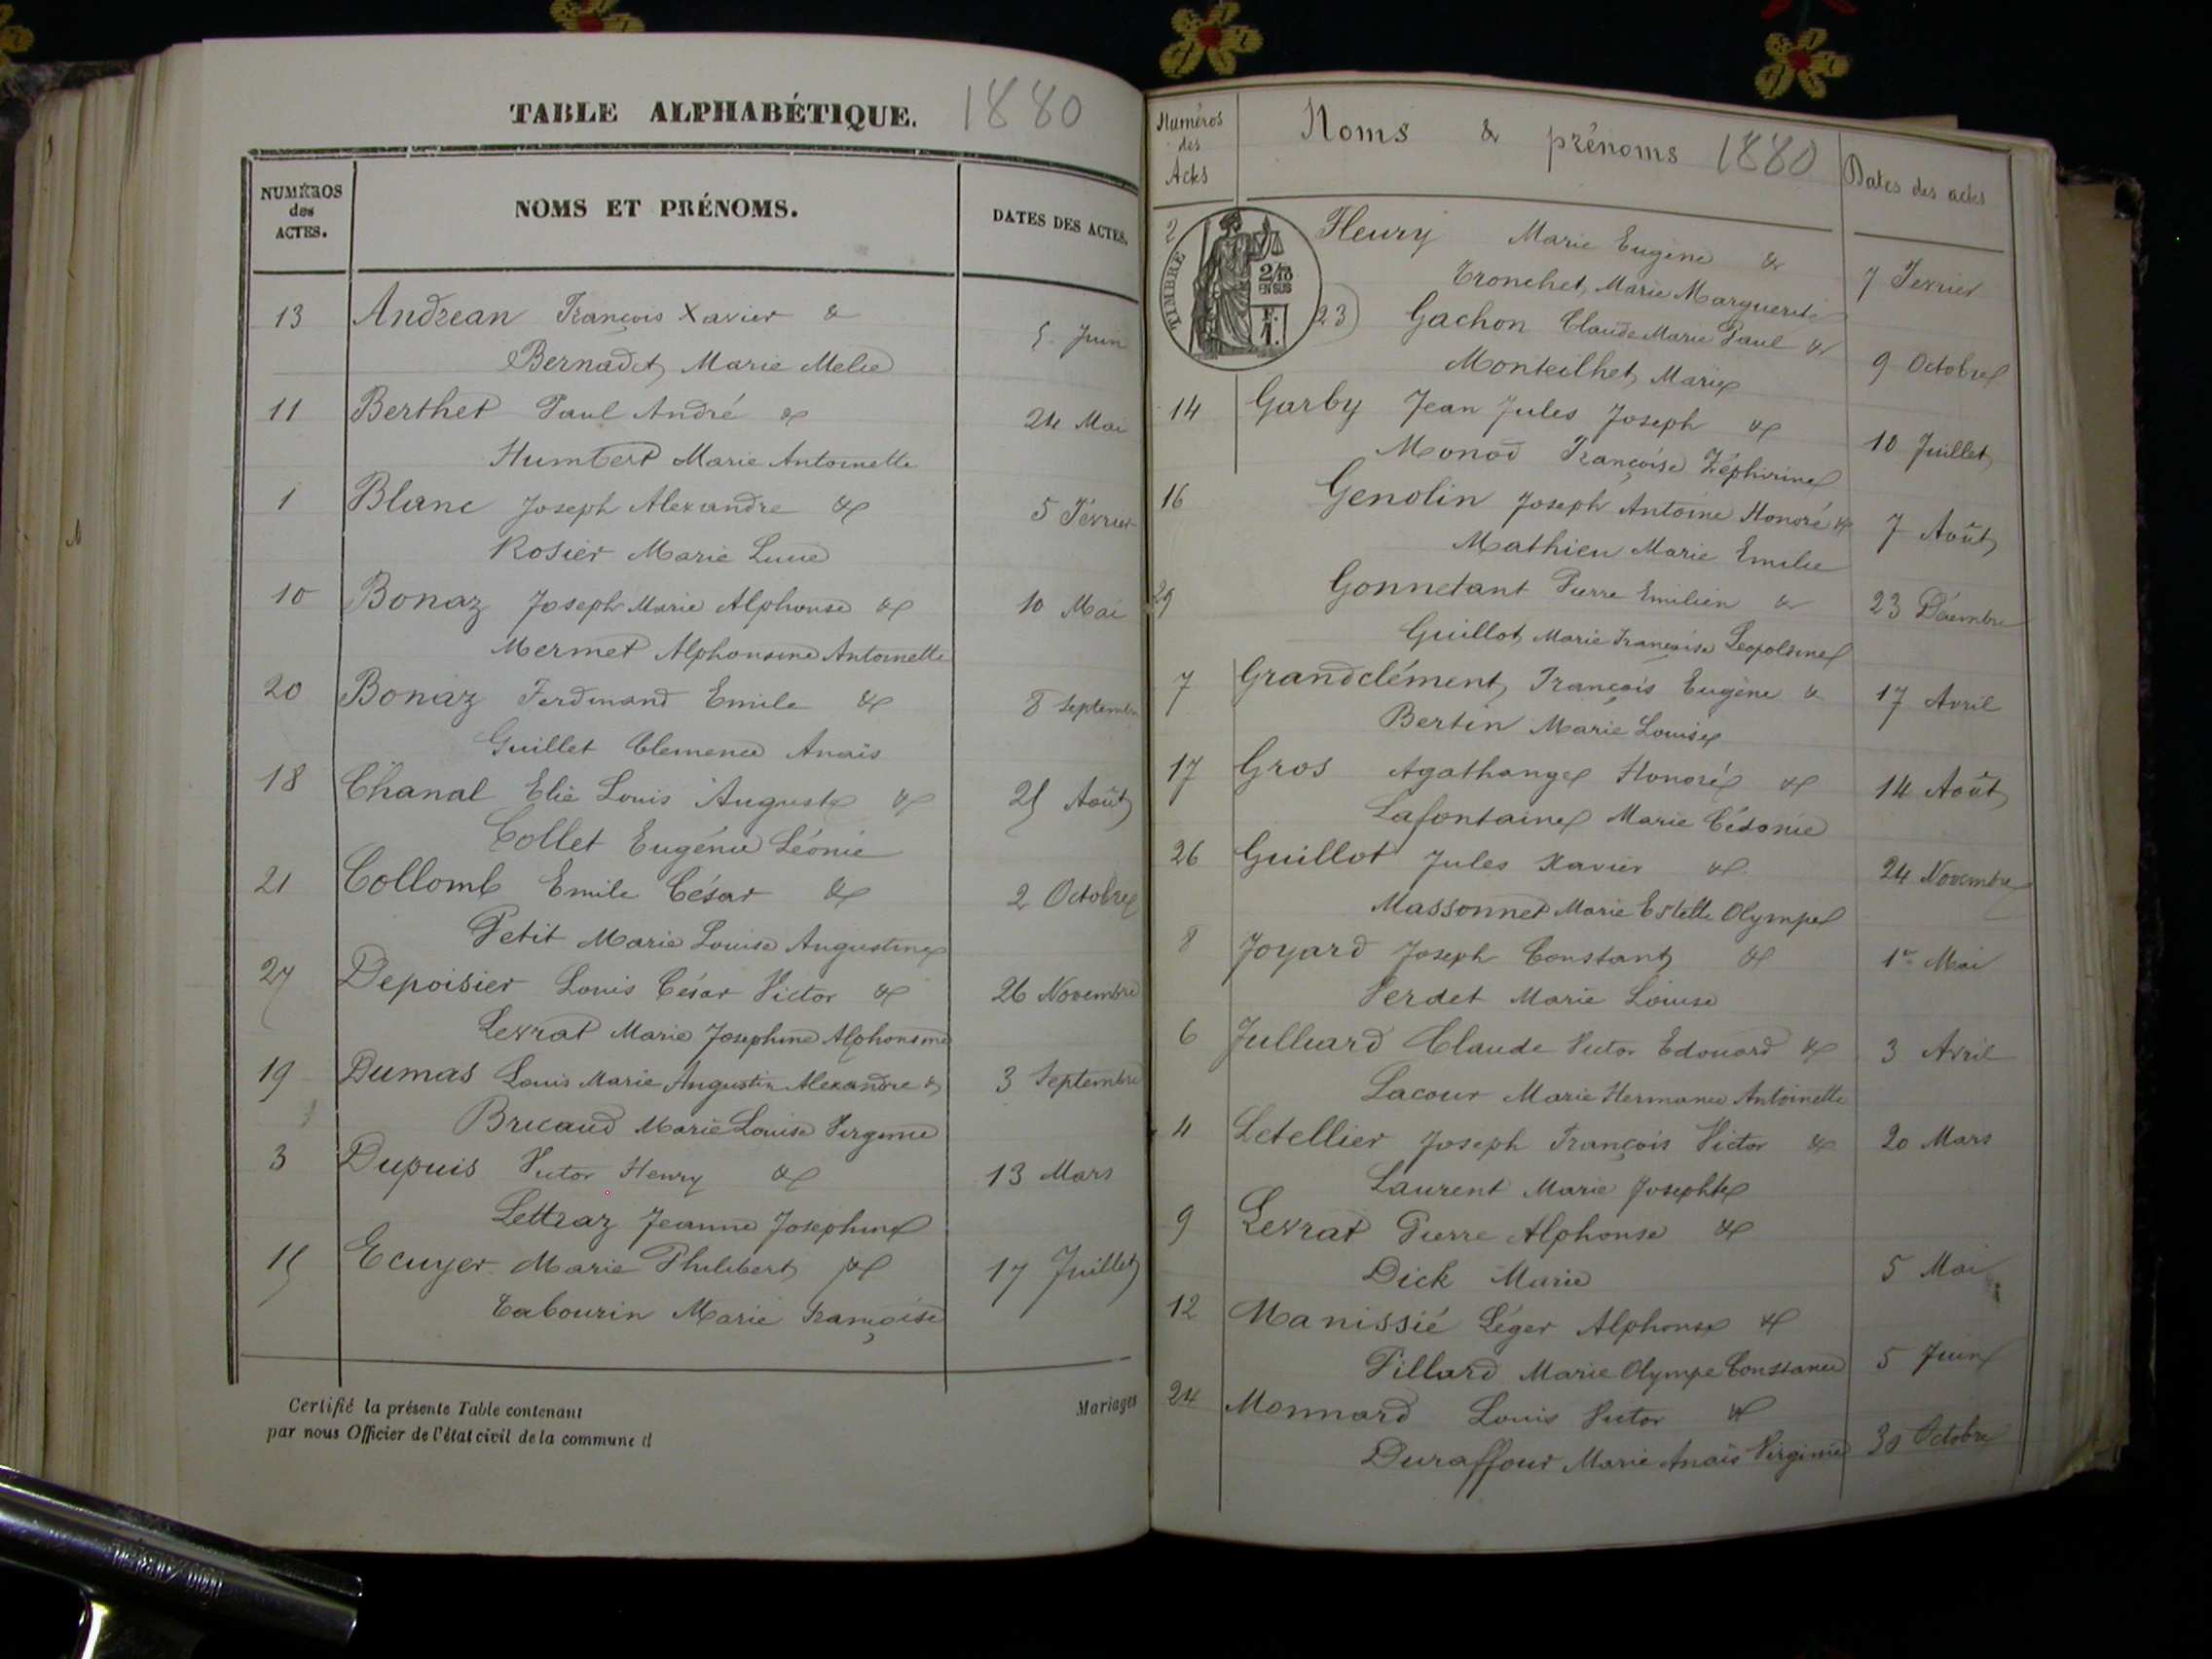 TABLE ALPHABÉTIQUE. 1880
NUMÉROS des ACTES.
NOMS ET PRÉNOMS.
DATES DES ACTES.
13 Andréan François Xavier & 5 Juin
Bernadet, Marie Melie
11 Berthet Paul André & 24 Mai
Humbert Marie Antoinette
1 Blanc Joseph Alexandre & 5 Février
Rosier Marie Lucie
10 Bonaz Joseph Marie Alphonse & 10 Mai
Mermet Alphonsine Antoinette
20 Bonaz Ferdinand Emile & 8 Septembre
Guillet Clemence Anaïs
18 Chanal Elie Louis Auguste & 25 Août
Collet Eugénie Léonie
21 Collomb Emile César & 2 Octobre
Petit Marie Louise Augustine
27 Depoisier Louis César Victor & 26 Novembre
Levrat Marie Josephine Alphonsine
19 Dumas Louis Marie Augustin Alexandre & 3 Septembre
Bricaud Marie Louise Virginie
3 Dupuis Victor Henry & 13 Mars
Lettraz Jeanne Josephine
15 Ecuyer Marie Philibert & 17 Juillet
Tabourin Marie Françoise
Certifié la présente Table contenant
Mariages
par nous Officier de l'état civil de la commune d
Numéros des Actes
Noms & prénoms 1880
Dates des actes
TIMBRE
2/10
EN SUS
F.
1.
2 Fleury Marie Eugène & 7 Fevrier
Tronchet, Marie Marguerite
23) Gachon Claude Marie Paul & 9 Octobre
Monteilhet, Marie
14 Garby Jean Jules Joseph & 10 Juillet
Monod Françoise Zéphirine
16 Genolin Joseph Antoine Honoré & 7 Août
Mathieu Marie Emilie
29 Gonnetant Pierre Emilien & 23 Décembre
Guillot, Marie Françoise Leopoldine
7 Grandclément, François Eugène & 17 Avril
Bertin Marie Louise
17 Gros Agathange Honoré & 14 Août
Lafontaine Marie Cédonie
26 Guillot Jules Xavier & 24 Novembre
Massonnet Marie Estelle Olympe
8 Joyard Joseph Constant & 1er Mai
Verdet Marie Louise
6 Julliard Claude Victor Edouard & 3 Avril
Lacour Marie Hermance Antoinette
4 Letellier Joseph François Victor & 20 Mars
Laurent Marie Josephte
9 Levrat Pierre Alphonse &
Dick Marie 5 Mai
12 Manissié Léger Alphonse &
Pillard Marie Olympe Constance 5 Juin
24 Monnard Louis Victor &
Duraffour Marie Anaïs Virginie 30 Octobre